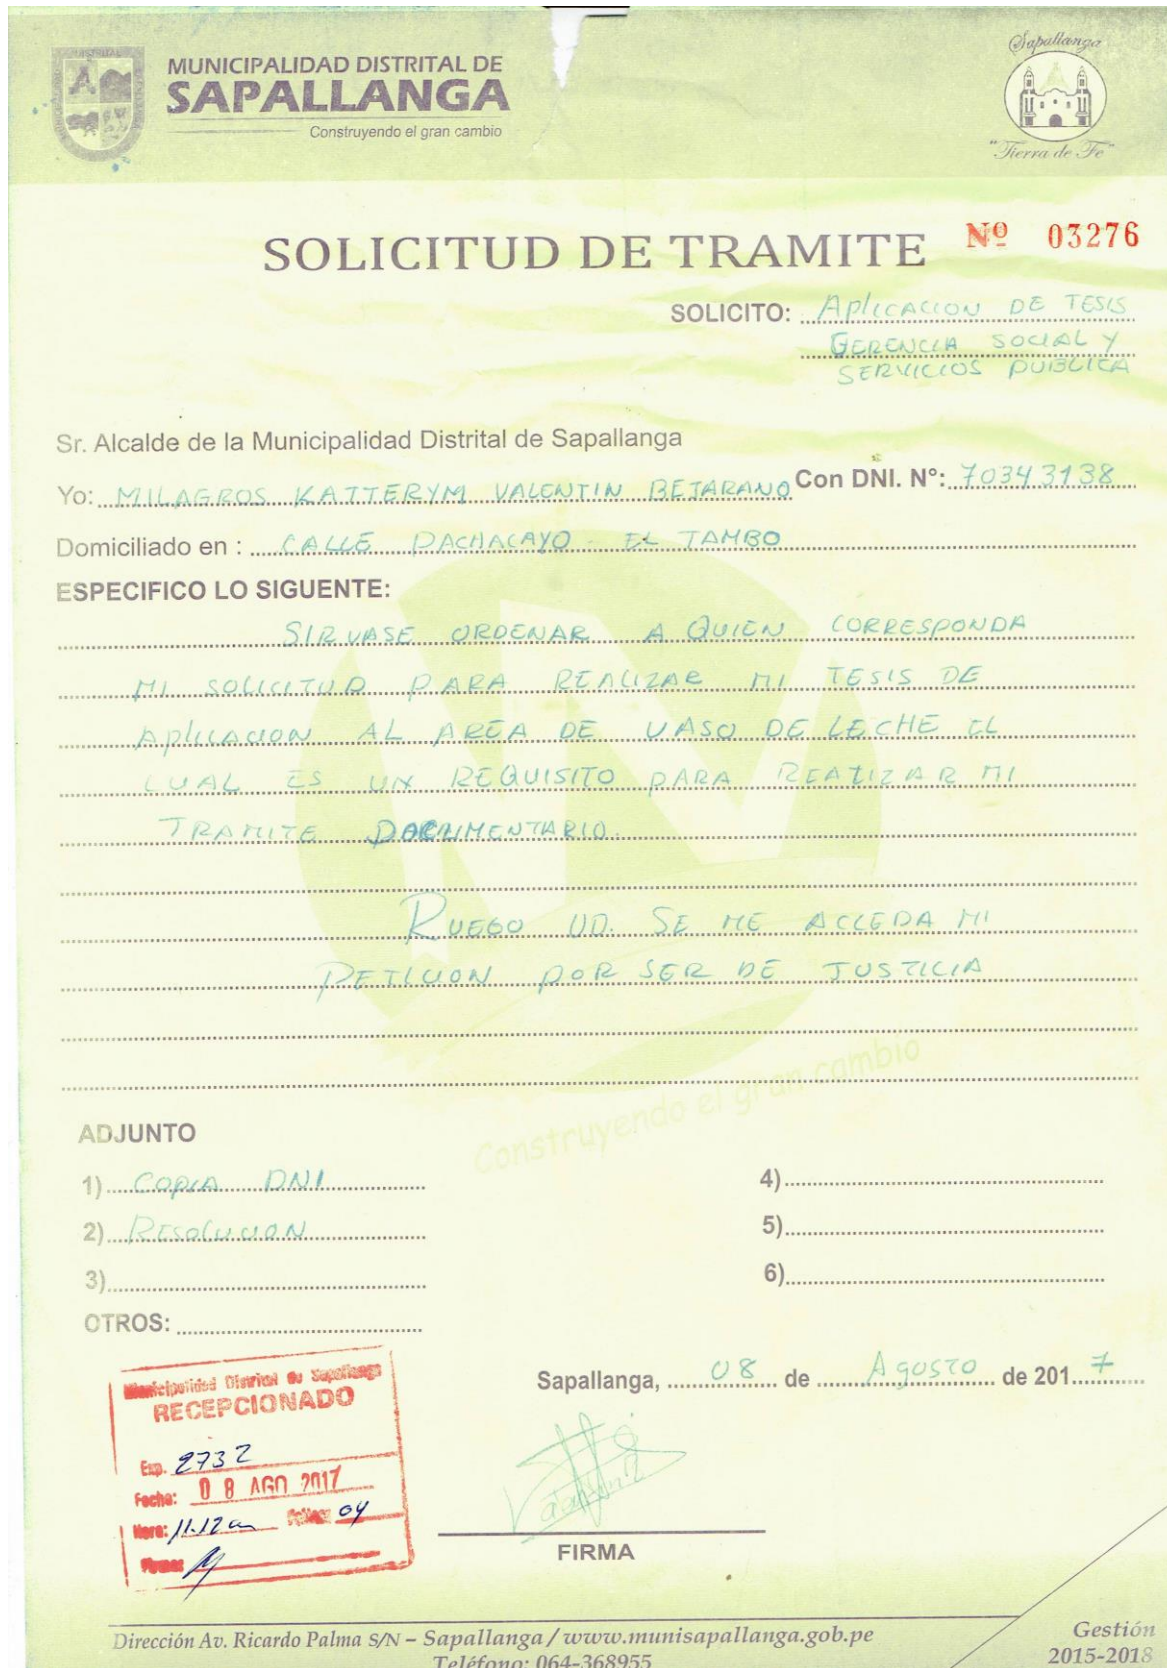 MUNICIPALIDAD DISTRITAL DE
SAPALLANGA
Construyendo el gran cambio
Sapallanga
"Tierra de Fe"
SOLICITUD DE TRAMITE Nº 03276
SOLICITO: APLICACION DE TESIS
GERENCIA SOCIAL Y
SERVICIOS PUBLICA
Sr. Alcalde de la Municipalidad Distrital de Sapallanga
Yo: MILAGROS KATTERYM VALENTIN BEJARANO Con DNI. N°: 70343138
Domiciliado en : CALLE PACHACAYO - EL TAMBO
ESPECIFICO LO SIGUENTE:
SIRVASE ORDENAR A QUIEN CORRESPONDA
MI SOLICITUD PARA REALIZAR MI TESIS DE
APLICACION AL AREA DE VASO DE LECHE EL
CUAL ES UN REQUISITO PARA REALIZAR MI
TRAMITE DOCUMENTARIO.
RUEGO UD. SE ME ACCEDA MI
PETICION POR SER DE JUSTICIA
Construyendo el gran cambio
ADJUNTO
1) COPIA DNI
2) RESOLUCION
3)
4)
5)
6)
OTROS:
Sapallanga, 08 de AGOSTO de 2017
Municipalidad Distrital de Sapallanga
RECEPCIONADO
Exp. 2732
Fecha: 08 AGO 2017
Hora: 11.12 am Folios: 04
Firma:
FIRMA
Dirección Av. Ricardo Palma S/N – Sapallanga / www.munisapallanga.gob.pe
Teléfono: 064-368955
Gestión
2015-2018